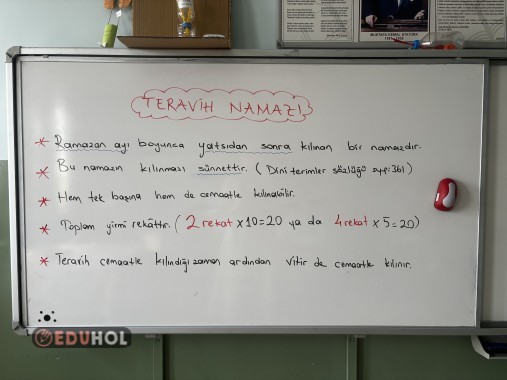 MUSTAFA KEMAL ATATÜRK
1881-1938
TERAVİH NAMAZI
* Ramazan ayı boyunca yatsıdan sonra kılınan bir namazdır.
* Bu namazın kılınması sünnettir. (Dini terimler sözlüğü syf:361)
* Hem tek başına hem de cemaatle kılınabilir.
* Toplam yirmi rekâttır. (2 rekat x10=20 ya da 4 rekat x 5=20)
* Teravih cemaatle kılındığı zaman ardından vitir de cemaatle kılınır.
EDUHOL